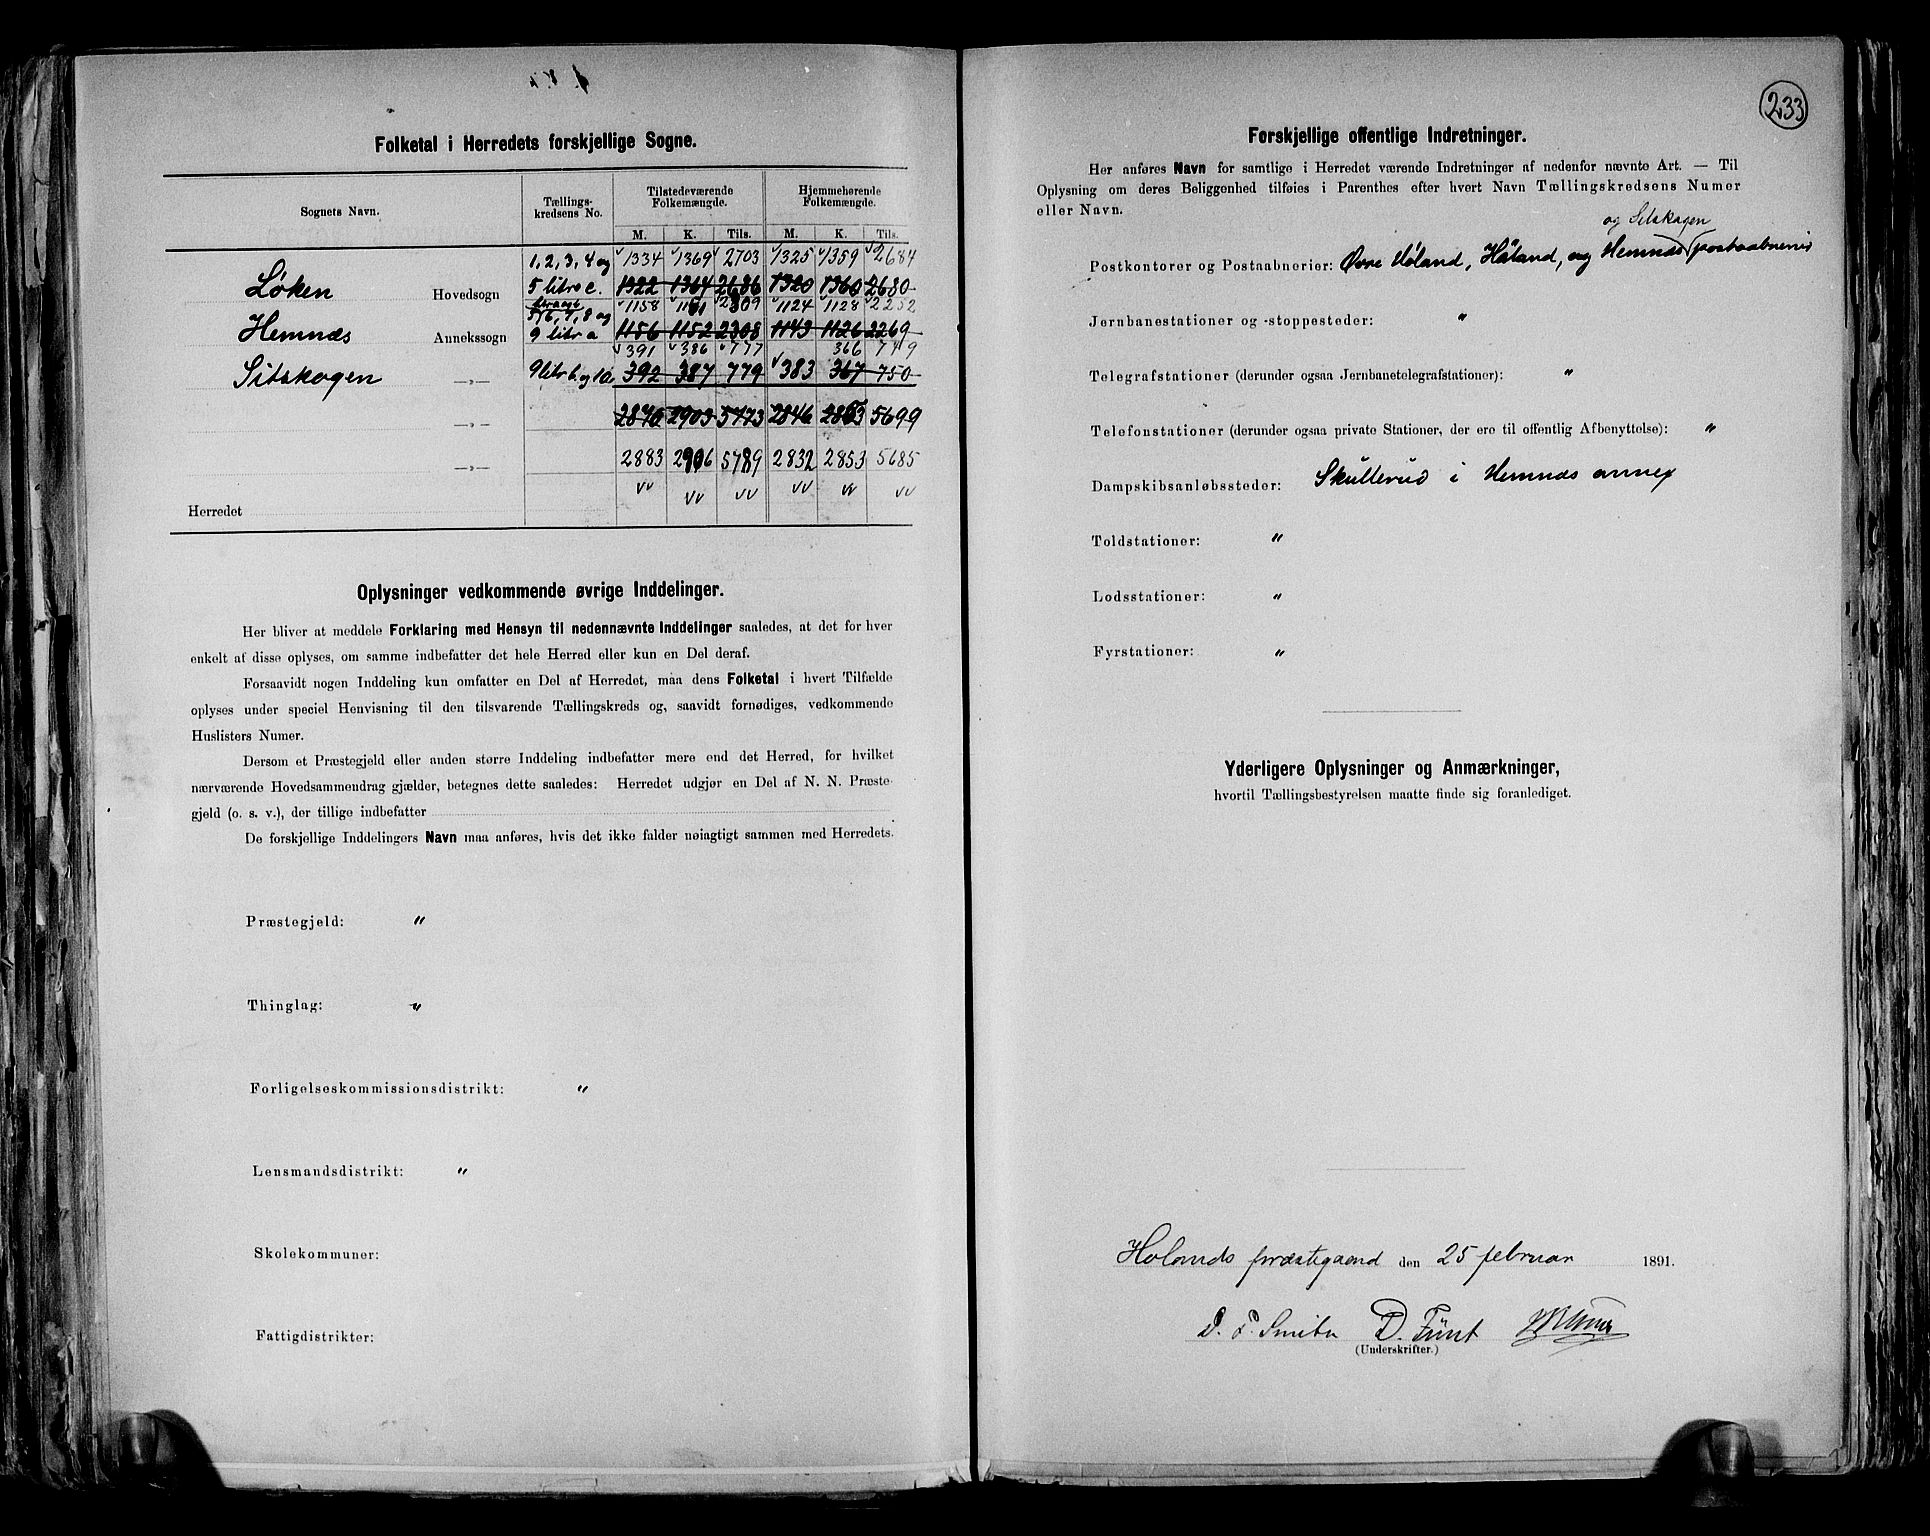 Folketal i Herredets forskjellige Sogne.
Sognets Navn.
Tællings-
kredsens No.
Tilstedeværende
Folkemængde.
Hjemmehørende
Folkemængde.
M. K. Tils. M. K. Tils.
1, 2, 3, 4 og 1334 1369 2703 1325 1359 2684
Løken Hovedsogn 5 litr c. 1322 1364 2686 1320 1360 2680
1158 1151 2309 1124 1128 2252
6, 7, 8 og
Hemnæs Annekssogn 9 litr a 1156 1152 2308 1143 1126 2269
391 386 777 366 749
Sitskogen —„— 9 litr b. og 10. 392 387 779 383 367 750
—„— 2870 2903 5773 2846 2853 5699
—„— 2883 2906 5789 2832 2853 5685
Herredet
Oplysninger vedkommende øvrige Inddelinger.
Her bliver at meddele Forklaring med Hensyn til nedennævnte Inddelinger saaledes, at det for hver
enkelt af disse oplyses, om samme indbefatter det hele Herred eller kun en Del deraf.
Forsaavidt nogen Inddeling kun omfatter en Del af Herredet, maa dens Folketal i hvert Tilfælde
oplyses under speciel Henvisning til den tilsvarende Tællingskreds og, saavidt fornødiges, vedkommende
Huslisters Numer.
Dersom et Præstegjeld eller anden større Inddeling indbefatter mere end det Herred, for hvilket
nærværende Hovedsammendrag gjælder, betegnes dette saaledes: Herredet udgjør en Del af N. N. Præste-
gjeld (o. s. v.), der tillige indbefatter
De forskjellige Inddelingers Navn maa anføres, hvis det ikke falder nøiagtigt sammen med Herredets.
Præstegjeld: "
Thinglag: "
Forligelseskommissionsdistrikt: "
Lensmandsdistrikt: "
Skolekommuner:
Fattigdistrikter:
233
Forskjellige offentlige Indretninger.
Her anføres Navn for samtlige i Herredet værende Indretninger af nedenfor nævnte Art. — Til
Oplysning om deres Beliggenhed tilføies i Parenthes efter hvert Navn Tællingskredsens Numer
eller Navn.
og Sitskogen
Postkontorer og Postaabnerier: Øvre Høland, Høland, og Hemnæs postaabneri
Jernbanestationer og -stoppesteder: "
Telegrafstationer (derunder ogsaa Jernbanetelegrafstationer): "
Telefonstationer (derunder ogsaa private Stationer, der ere til offentlig Afbenyttelse): "
Dampskibsanløbssteder: Skullerud i Hemnæs annex
Toldstationer: "
Lodsstationer: "
Fyrstationer: "
Yderligere Oplysninger og Anmærkninger,
hvortil Tællingsbestyrelsen maatte finde sig foranlediget.
Hølands præstegaard den 25 februar 1891.
D. Fünt
(Underskrifter.)